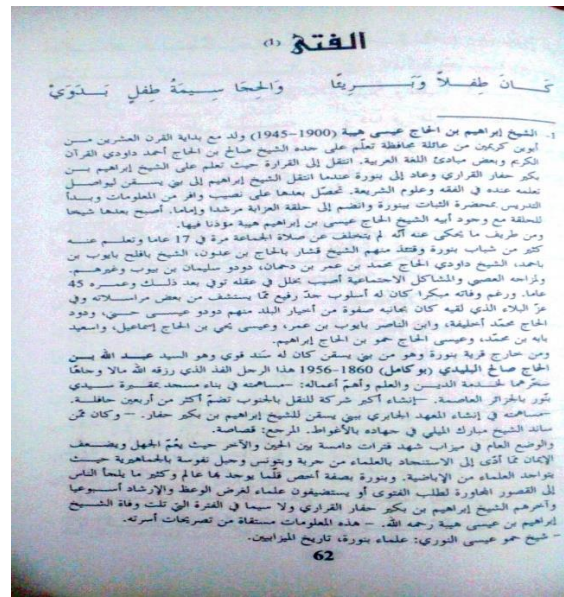 الفتى (1)
كَانَ طِفلاً وَبَرِيئًا وَالحِجَا سِيمَةُ طِفلٍ بَدَوَيْ
1- الشيخ إبراهيم بن الحاج عيسى هيبة (1900-1945) ولد مع بداية القرن العشرين من
أبوين كريمين من عائلة محافظة تعلّم على جده الشيخ صالح بن الحاج أحمد داودي القرآن
الكريم وبعض مبادئ اللغة العربية. انتقل إلى القرارة حيث تعلم على الشيخ إبراهيم بن
بكير حفار القراري وعاد إلى بنورة عندما انتقل الشيخ إبراهيم إلى بني يسقن ليواصل
تعلمه عنده في الفقه وعلوم الشريعة. تحصّل بعدها على نصيب وافر من المعلومات وبدأ
التدريس بمحضرة الثبات ببنورة وانضم إلى حلقة العزابة مرشدا وإماما. أصبح بعدها شيخا
للحلقة مع وجود أبيه الشيخ الحاج عيسى بن إبراهيم هيبة مؤذنا فيها.
ومن طريف ما يحكى عنه أنّه لم يتخلف عن صلاة الجماعة مرة في 17 عاما وتعلم عنه
كثير من شباب بنورة وقتئذ منهم الشيخ قشار بالحاج بن عدون، الشيخ بافلح بايوب بن
باحمد، الشيخ داودي الحاج محمد بن عمر بن دحمان، دودو سليمان بن بيوب وغيرهم.
ولمزاجه العصبي والمشاكل الاجتماعية أصيب بخلل في عقله توفي بعد ذلك وعمره 45
عاما. ورغم وفاته مبكرا كان له أسلوب جدّ رفيع مما يستشف من بعض مراسلاته وفي
عزّ البلاء الذي لقيه كان بجانبه صفوة من أخيار البلد منهم دودو عيسى حني، ودود
الحاج محمّد أخليفة، وابن الناصر بايوب بن عمر، وعيسى يحي بن الحاج إسماعيل، واسعيد
بابه بن محمّد، وعيسى الحاج حمو بن الحاج إبراهيم.
ومن خارج قرية بنورة وهو من بني يسقن كان له سَند قوي وهو السيد عبد الله بن
الحاج صالح البليدي (بو كامل) 1860-1956 هذا الرجل الفذ الذي رزقه الله مالا وجاها
سخّرهما لخدمة الدين والعلم وأهمّ أعماله: –مساهمته في بناء مسجد بمقبرة سيدي
بنّور بالجزائر العاصمة. –إنشاء أكبر شركة للنقل بالجنوب تضمّ أكثر من أربعين حافلة.
–مساهمته في إنشاء المعهد الجابري ببني يسقن للشيخ إبراهيم بن بكير حفار. –وكان ممّن
ساند الشيخ مبارك الميلي في جهاده بالأغواط. المرجع: قصاصة.
والوضع العام في ميزاب شهد فترات دامسة بين الحين والآخر حيث يعُمّ الجهل ويضعف
الإيمان مما أدّى إلى الاستنجاد بالعلماء من جربة وبتونس وجبل نفوسة بالجماهيرية حيث
يتواجد العلماء من الإباضية. وبنورة بصفة أخص قلّما يوجد بها عالم وكثير ما يلجأ الناس
إلى القصور المجاورة لطلب الفتوى أو يستضيفون علماء لغرض الوعظ والإرشاد أسبوعيا
وآخرهم الشيخ إبراهيم بن بكير حفار القراري ولا سيما في الفترة التي تلت وفاة الشيخ
إبراهيم بن عيسى هيبة رحمه الله. – هذه المعلومات مستقاة من تصريحات أسرته.
- شيخ حمو عيسى النوري: علماء بنورة، تاريخ الميزابيين.
62